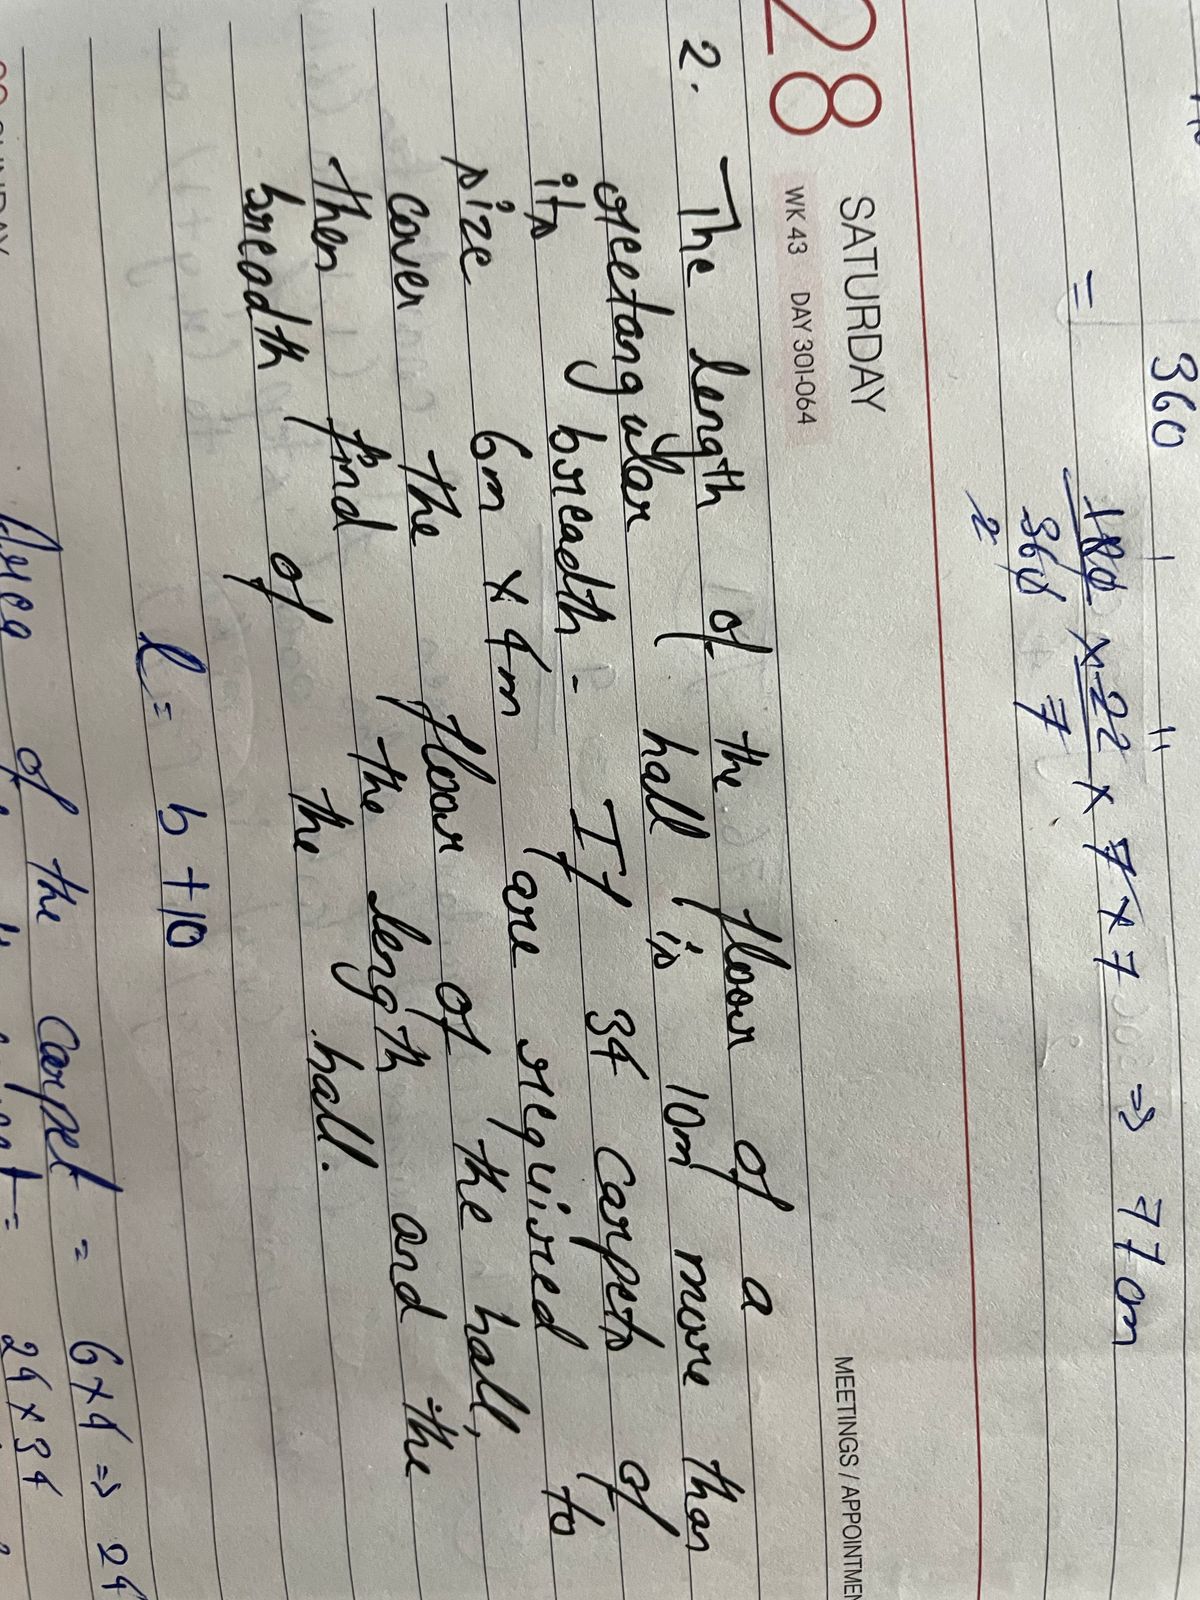 360
= 180/360 × 22/7 × 7 × 7 ⇒ 77 cm
2
28 SATURDAY
WK 43 DAY 301-064
MEETINGS / APPOINTMEN
2. The length of the floor of a
rectangular hall is 10m more than
its breadth. If 34 carpets of
size 6m × 4m are required to
cover the floor of the hall,
then find the length and the
breadth of the hall.
l = b + 10
Area of the carpet = 6×4 ⇒ 24
24×34